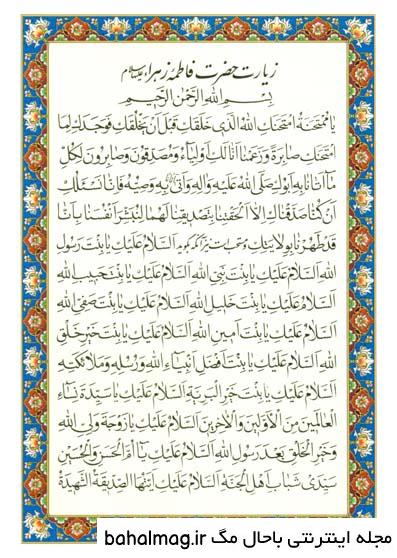 زیارت حضرت فاطمه زهراء علیهاالسلام
بِسْمِ اللهِ الرَّحْمٰنِ الرَّحیمِ
یا مُمْتَحَنَةُ امْتَحَنَكِ اللهُ الَّذی خَلَقَكِ قَبْلَ اَنْ یَخْلُقَكِ فَوَجَدَكِ لِمَا
امْتَحَنَكِ صابِرَةً وَزَعَمْنا اَنّا لَكِ اَوْلِیاءُ وَمُصَدِّقُونَ وَصابِرُونَ لِكُلِّ
ما اَتانا بِهِ اَبُوكِ صَلَّی اللهُ عَلَیْهِ وَالِهِ وَاَتیٰ بِهِ وَصِیُّهُ فَاِنّا نَسْئَلُكِ
اِنْ كُنّا صَدَّقْناكِ اِلاّ اَلْحَقْتِنا بِتَصْدیقِنا لَهُما لِنُبَشِّرَ اَنْفُسَنا بِاَنّا
قَدْ طَهُرْنا بِوِلایَتِكِ و مستحب است نیز آنکه گوید اَلسَّلامُ عَلَیْكِ یا بِنْتَ رَسُولِ
اللهِ اَلسَّلامُ عَلَیْكِ یا بِنْتَ نَبِیِّ اللهِ اَلسَّلامُ عَلَیْكِ یا بِنْتَ حَبیبِ اللهِ
اَلسَّلامُ عَلَیْكِ یا بِنْتَ خَلیلِ اللهِ اَلسَّلامُ عَلَیْكِ یا بِنْتَ صَفِیِّ اللهِ
اَلسَّلامُ عَلَیْكِ یا بِنْتَ اَمینِ اللهِ اَلسَّلامُ عَلَیْكِ یا بِنْتَ خَیْرِ خَلْقِ
اللهِ اَلسَّلامُ عَلَیْكِ یا بِنْتَ اَفْضَلِ اَنْبِیاءِ اللهِ وَرُسُلِهِ وَمَلائِكَتِهِ
اَلسَّلامُ عَلَیْكِ یا بِنْتَ خَیْرِ الْبَرِیَّةِ اَلسَّلامُ عَلَیْكِ یا سَیِّدَةَ نِساءِ
الْعالَمینَ مِنَ الْاَوَّلینَ وَالْاخِرینَ اَلسَّلامُ عَلَیْكِ یا زَوْجَةَ وَلِیِّ اللهِ
وَخَیْرِ الْخَلْقِ بَعْدَ رَسُولِ اللهِ اَلسَّلامُ عَلَیْكِ یا اُمَّ الْحَسَنِ وَالْحُسَیْنِ
سَیِّدَیْ شَبابِ اَهْلِ الْجَنَّةِ اَلسَّلامُ عَلَیْكِ اَیَّتُهَا الصِّدّیقَةُ الشَّهیدَةُ
مجله اینترنتی باحال مگ bahalmag.ir